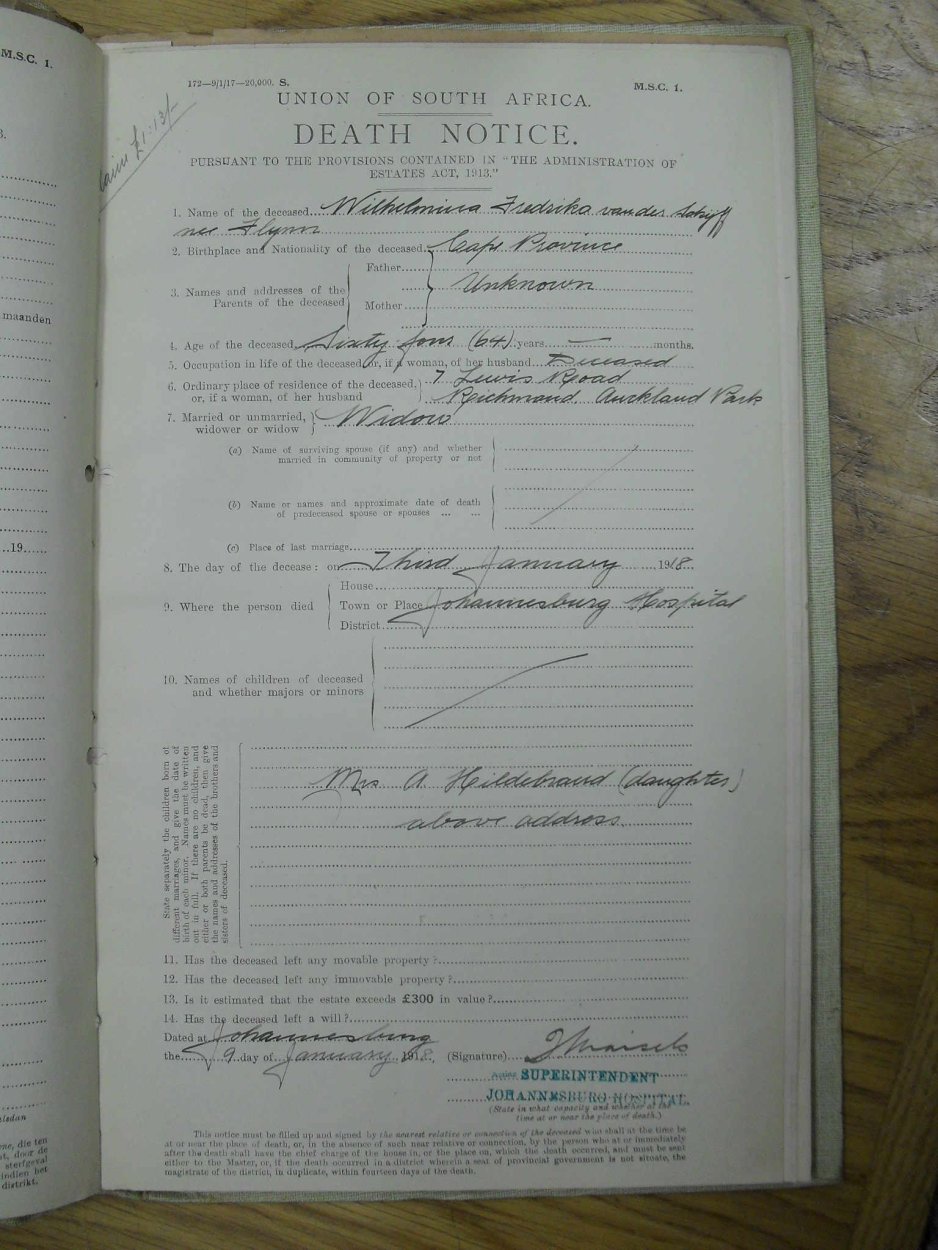 M.S.C. 1.
3.
maanden
..19......
ne, die ten
st, door de
sterfgeval
indien het
distrikt.
172—9/1/17—20,000. S.
M.S.C. 1.
£1:13/-
UNION OF SOUTH AFRICA.
DEATH NOTICE.
PURSUANT TO THE PROVISIONS CONTAINED IN "THE ADMINISTRATION OF
ESTATES ACT, 1913."
1. Name of the deceased Wilhelmina Fredrika van der Schyff
nee Flynn
2. Birthplace and Nationality of the deceased. Cape Province
Father
3. Names and addresses of the Parents of the deceased Unknown
Mother
4. Age of the deceased Sixty four (64) years — months.
5. Occupation in life of the deceased, or, if a woman, of her husband Deceased
6. Ordinary place of residence of the deceased, 7 Lewis Road
or, if a woman, of her husband Richmond. Auckland Park
7. Married or unmarried, widower or widow Widow
(a) Name of surviving spouse (if any) and whether
married in community of property or not
(b) Name or names and approximate date of death
of predeceased spouse or spouses ... ...
(c) Place of last marriage
8. The day of the decease: on Third January 1918.
House
9. Where the person died Town or Place Johannesburg Hospital
District
10. Names of children of deceased
and whether majors or minors
State separately the children born of
different marriages, and give the date of
birth of each minor. Names must be written
out in full. If there are no children, and
either or both parents be dead, then give
the names and addresses of the brothers and
sisters of deceased.
Mrs A. Hildebrand (daughter)
above address.
11. Has the deceased left any movable property?
12. Has the deceased left any immovable property?
13. Is it estimated that the estate exceeds £300 in value?
14. Has the deceased left a will?
Dated at Johannesburg
the 9 day of January 1918. (Signature)
SUPERINTENDENT
JOHANNESBURG HOSPITAL.
(State in what capacity and whether at the
time at or near the place of death.)
This notice must be filled up and signed by the nearest relative or connection of the deceased who shall at the time be
at or near the place of death, or, in the absence of such near relative or connection, by the person who at or immediately
after the death shall have the chief charge of the house in, or the place on, which the death occurred, and must be sent
either to the Master, or, if the death occurred in a district wherein a seat of provincial government is not situate, the
magistrate of the district, in duplicate, within fourteen days of the death.